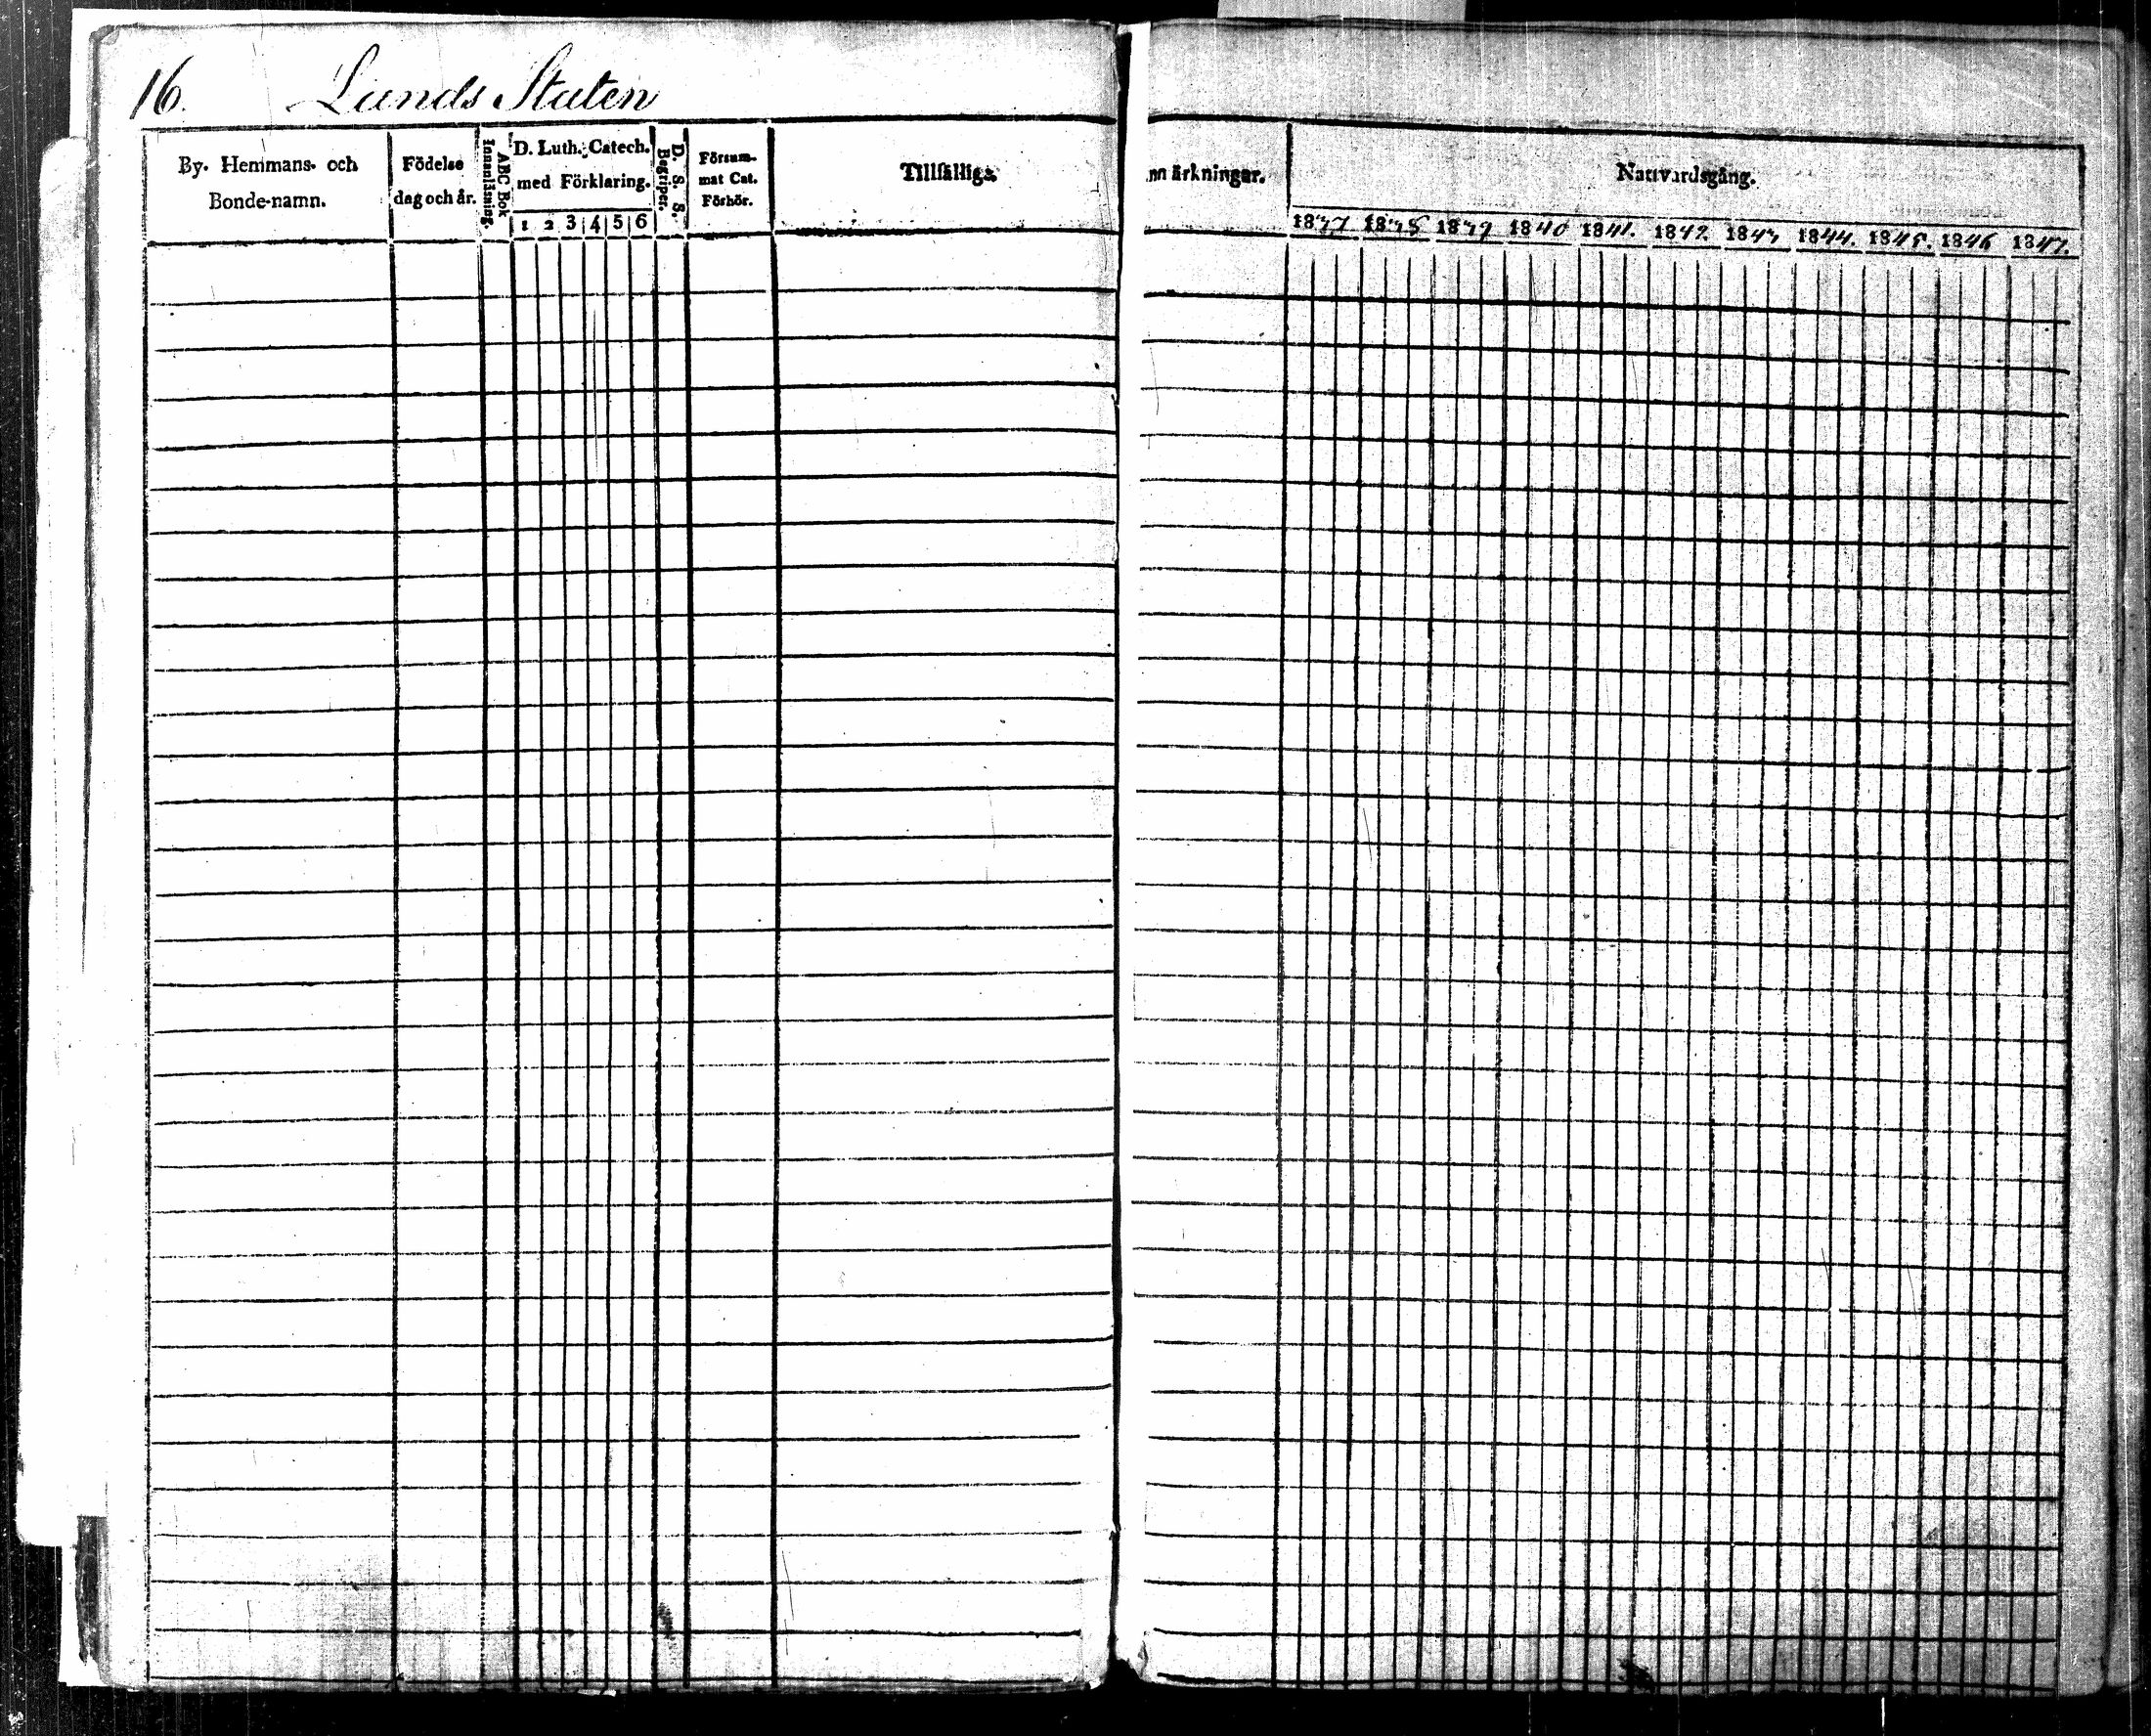 16. Lands Staten
By. Hemmans- och
Bonde-namn.
Födelse
dag och år.
Innanläsning.
ABC Bok
D. Luth. Catech.
med Förklaring.
1 2 3 4 5 6
D. S. S.
Begriper.
Försum-
mat Cat.
Förhör.
Tillfälliga
nn ärkningar.
Nattvardsgång.
1837 1838 1839 1840 1841. 1842. 1843 1844. 1845. 1846 1847.